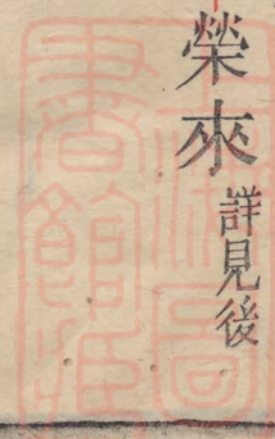 榮來詳見後